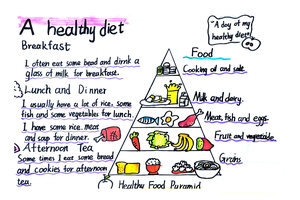 A healthy diet
"A day of my
healthy diet"
Breakfast
I often eat some bead and drink a
glass of milk for breakfast.
Lunch and Dinner
I usually have a lot of rice, some
fish and some vegetables for lunch.
I have some rice, meat
and soup for dinner.
Afternoon Tea
Some times I eat some bread
and cookies for afternoon
tea.
Food
Cooking oil and salt.
Milk and dairy.
Meat, fish and eggs.
Fruit and vegetable.
Grains.
Healthy Food Pyramid